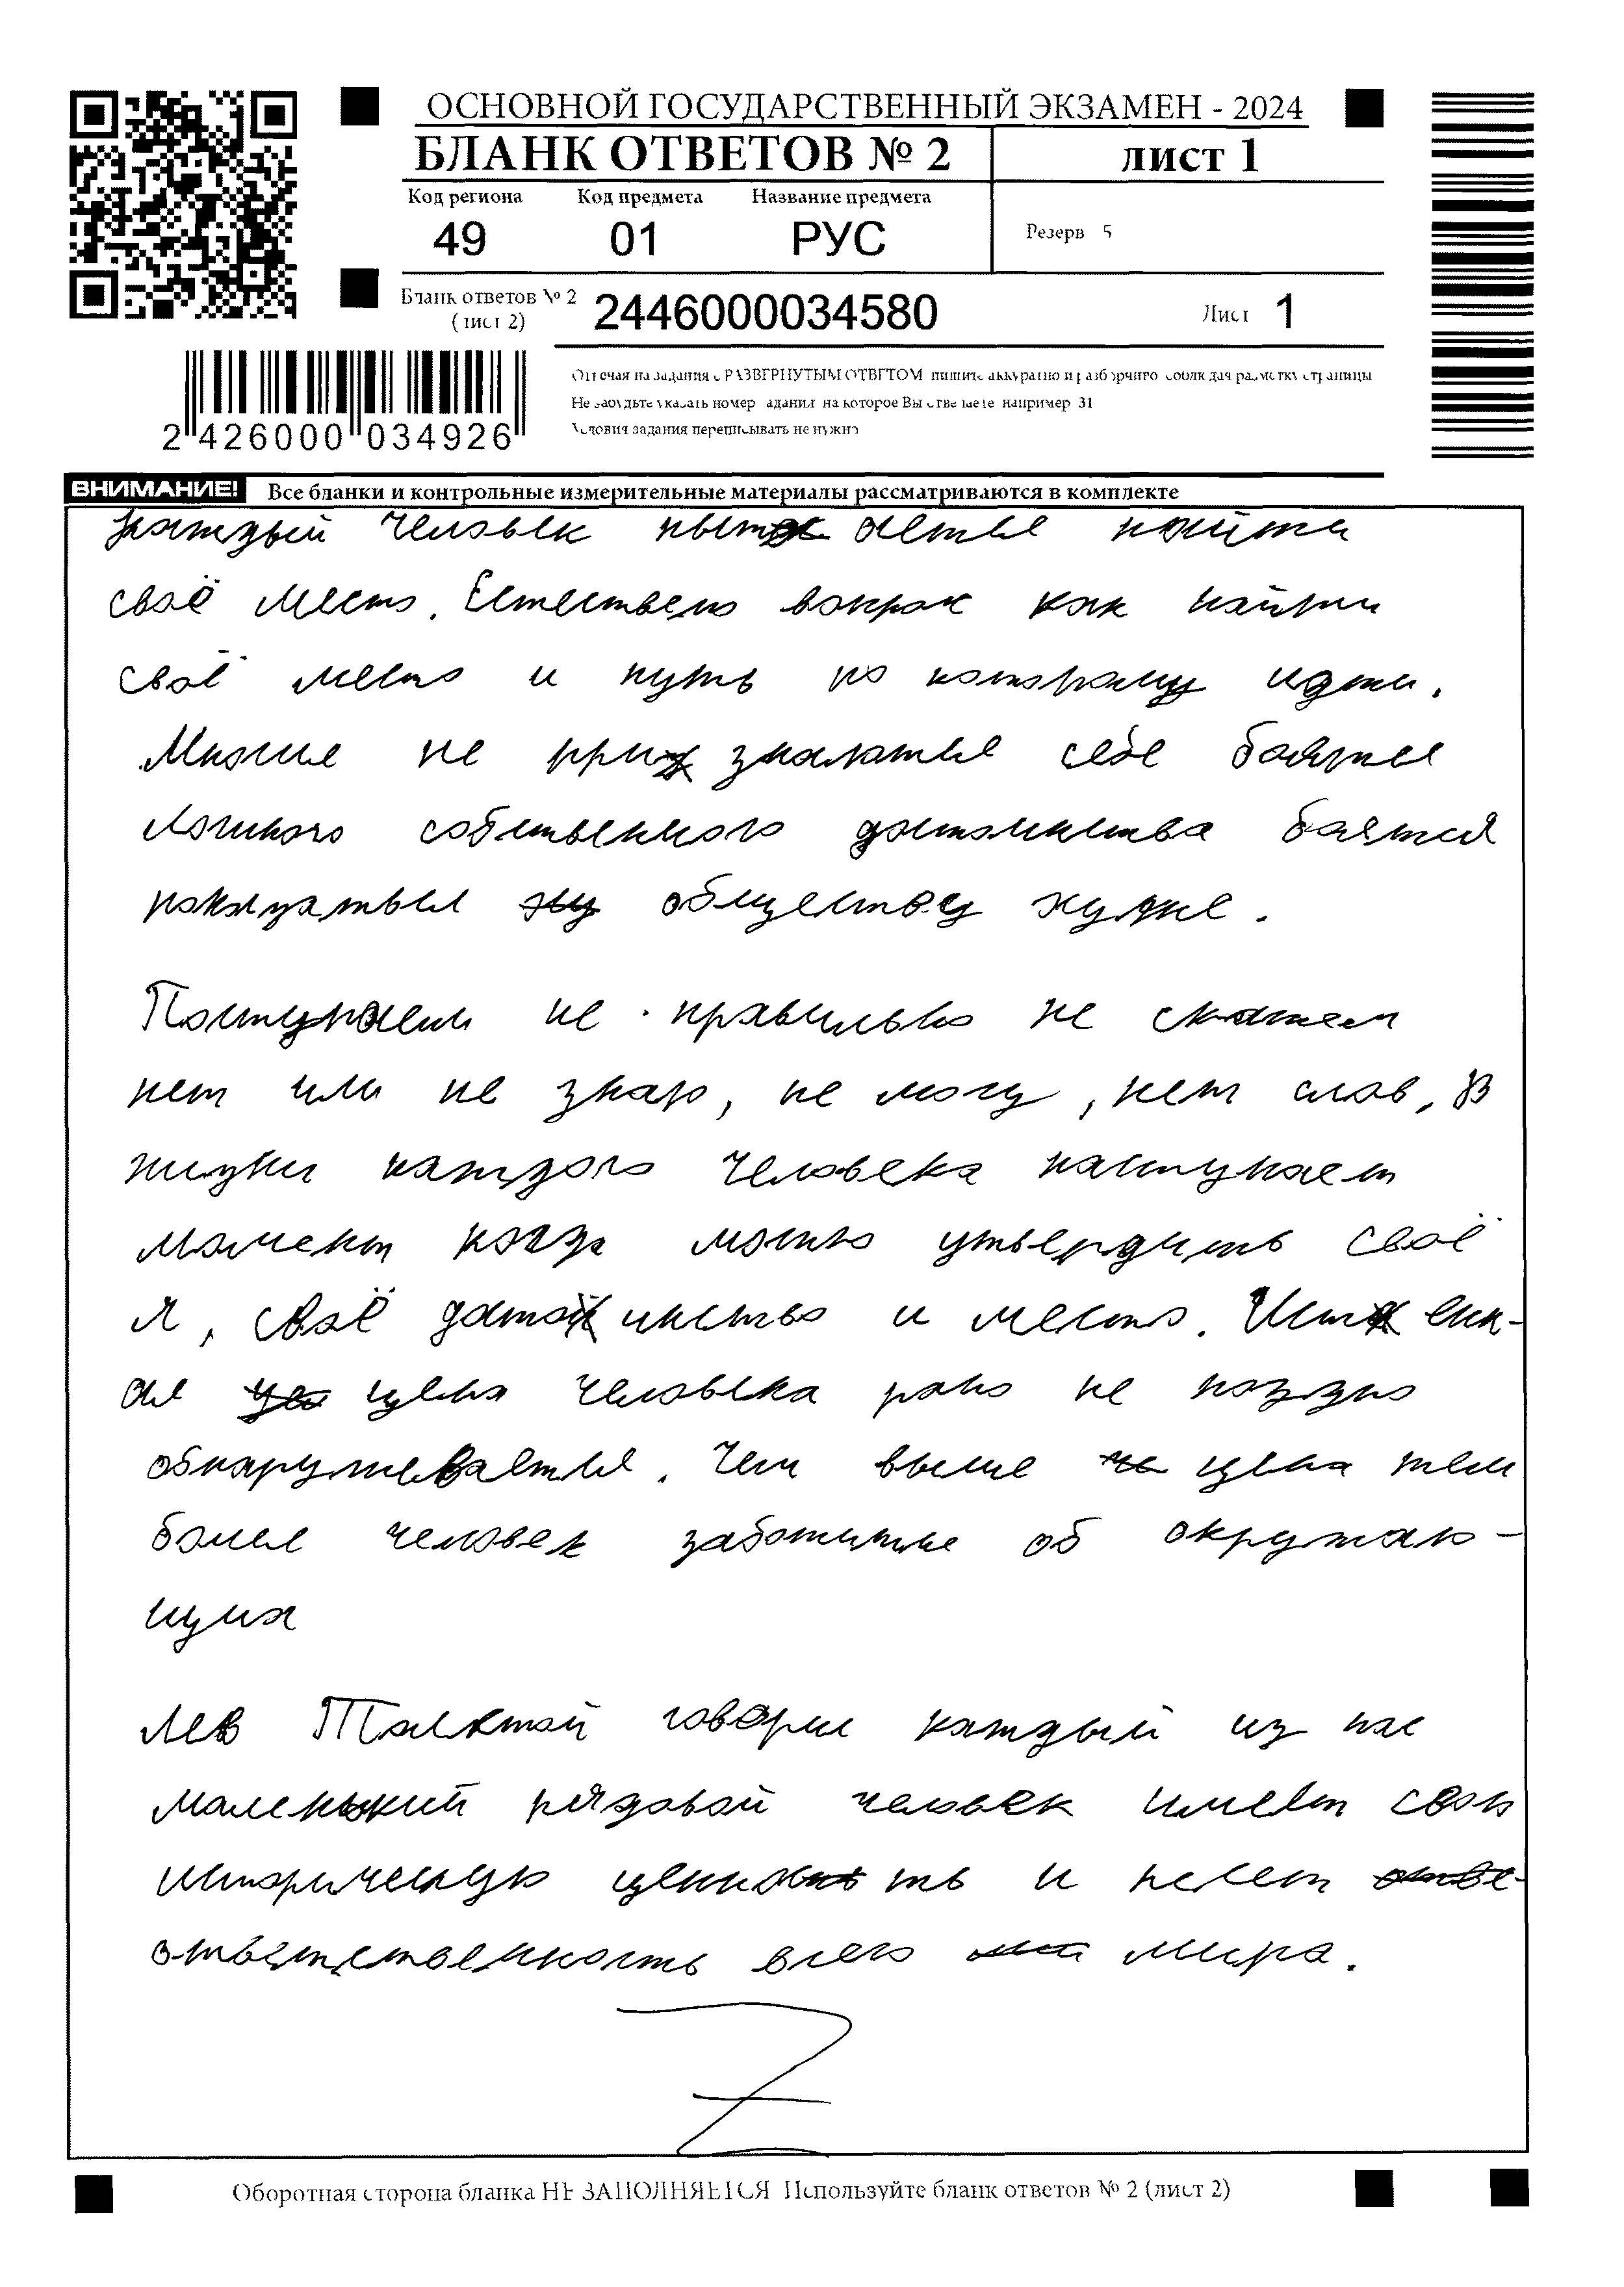 ОСНОВНОЙ ГОСУДАРСТВЕННЫЙ ЭКЗАМЕН - 2024
БЛАНК ОТВЕТОВ № 2
лист 1
Код региона
Код предмета
Название предмета
49
01
РУС
Резерв 5
Бланк ответов № 2
(лист 2)
2446000034580
Лист 1
2 426000 034926
Отвечая на задания с РАЗВЕРНУТЫМ ОТВЕТОМ, пишите аккуратно и разборчиво, соблюдая разметку страницы
Не забудьте указать номер задания, на которое Вы отвечаете, например 31
Условия задания переписывать не нужно
ВНИМАНИЕ!
Все бланки и контрольные измерительные материалы рассматриваются в комплекте
Каждый человек пытается найти
своё место. Естествено вопрос как найти
своё место и путь по которому идти.
Многие не признаются себе боятся
логиного собственного достоинства боятся
показаться обществу хуже.
Поступаем не правильно не скажем
нет или не знаю, не могу, нет слов, В
жизни каждого человека наступает
момент когда можно утвердить своё
я, своё достоинство и место. Истенн-
ая цена человека рано не поздно
обнаруживается. Чем выше цена тем
более человек заботится об окружаю-
щих
Лев Толстой говорил каждый из нас
маленький рядовой человек имеет свою
историческую ценность и несет
ответственность всего мира.
Z
Оборотная сторона бланка НЕ ЗАПОЛНЯЕТСЯ Используйте бланк ответов № 2 (лист 2)